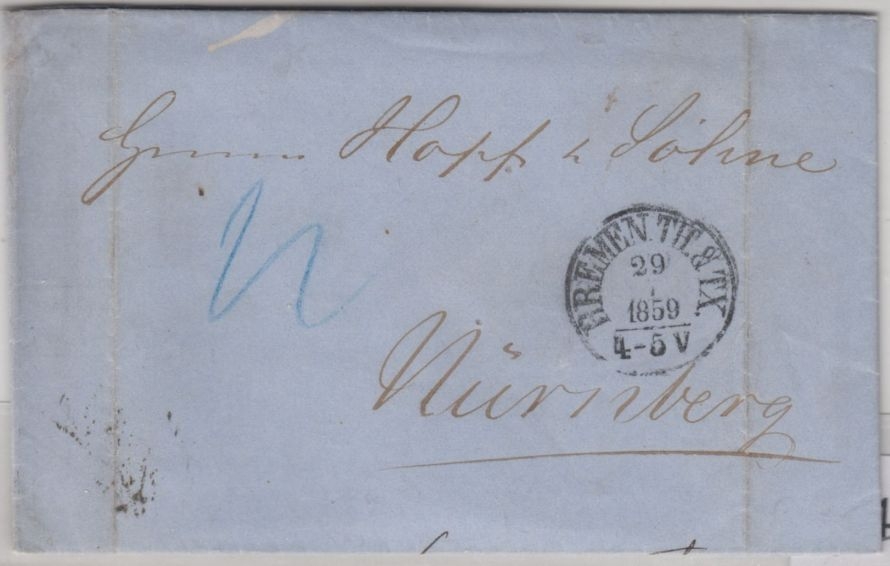 Herrn Hopf & Söhne
BREMEN. TH. & TX.
29
1859
4-5 V
Nürnberg